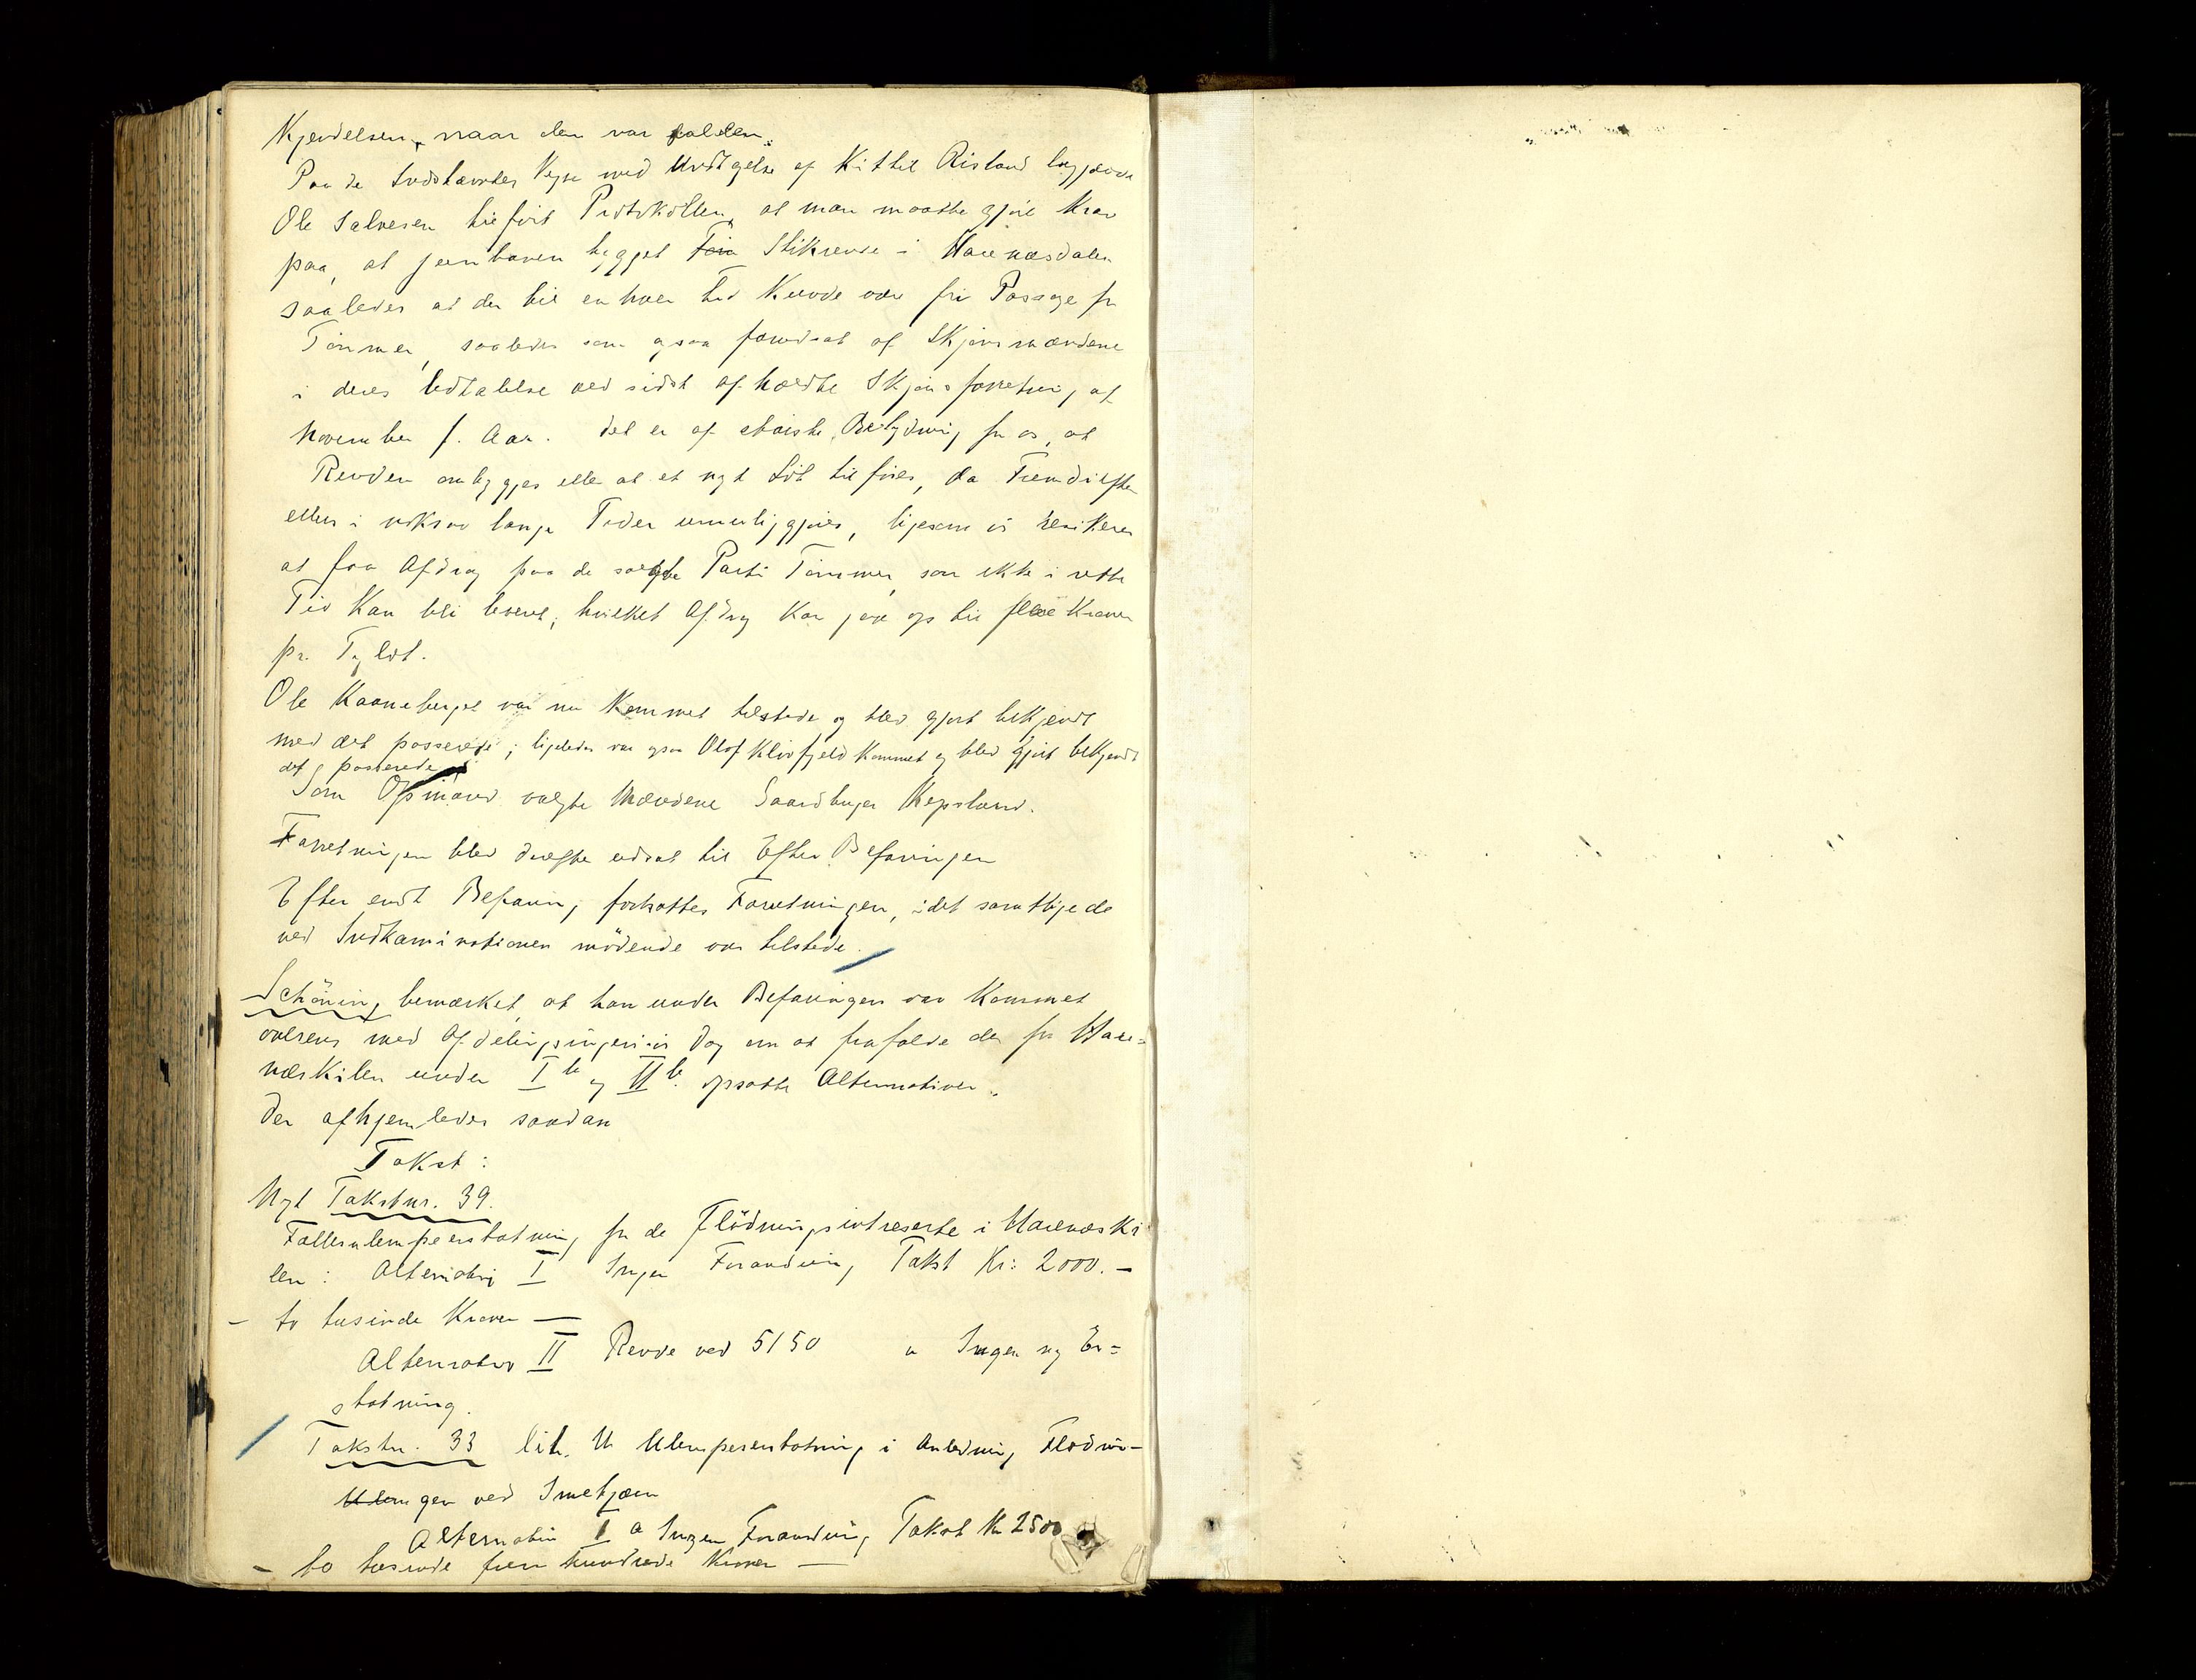 Kjendelsen, naar den var falden.
Paa de Indstævntes Vegne med Undtagelse af Kittel Risland begjærede
Ole Salvesen tilført Protokollen, at man maatte gjøre Krav
paa, at Jernbanen bygget Stikrende i Harenæsdalen
saaledes at der til enhver Tid kunde være fri Passage for
Tømmer, saaledes som ogsaa forudsat af Skjønsmændene
i deres Udtalelse ved sidst afholdte Skjønsforretning af
November f. Aar. Det er af største Betydning for os, at
Renden ombygges eller at et nyt Løb tilføies, da Fremdriften
ellers i voksne lange Tider umuliggjøres, ligesom vi risikerer
at faa Afdrag paa de solgte Parti Tømmer, som ikke i rette
Tid kan bli leveret; hvilket Afdrag kan gaa op til flere Kroner
pr. Tylvt.
Ole Kaaneberget var nu kommet tilstede og blev gjort bekjendt
med det passerede; ligeledes var ogsaa Olof Klivfjeld kommet og blev gjort bekjendt
det passerede
Som Opmand valgte Mændene Gaardbruger Kepsland.
Forretningen blev derefter udsat til Efter Befaringen
Efter endt Befaring fortsattes Forretningen, idet samtlige de
ved Indkaminationen mødende var tilstede.
Schöning bemærket, at han under Befaringen var kommet
overens med Afdelingsingeniør Dag om at frafalde de for Hare=
næskilen under I b og II b. opsatte Alternativer.
Der afhjemledes saadan
Takst:
Nyt Takstnr. 39.
Fællesulempeerstatning for de Flødningsintreserte i Harenæski
len: Alternativ I Ingen Forandring Takst Kr: 2000.—
— to tusinde Kroner —
Alternativ II Rende ved 5150 " Ingen ny Er=
statning.
Takstnr. 33 lit. U Ulempeserstatning i Anledning Flødnin-
gen ved Smetjern
Alternativ I a Ingen Forandring Takst Kr 2500
— to tusinde fem hundrede Kroner —